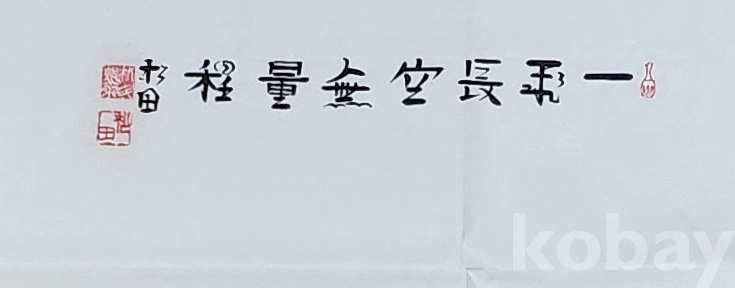 一飛長空無量程
kobay